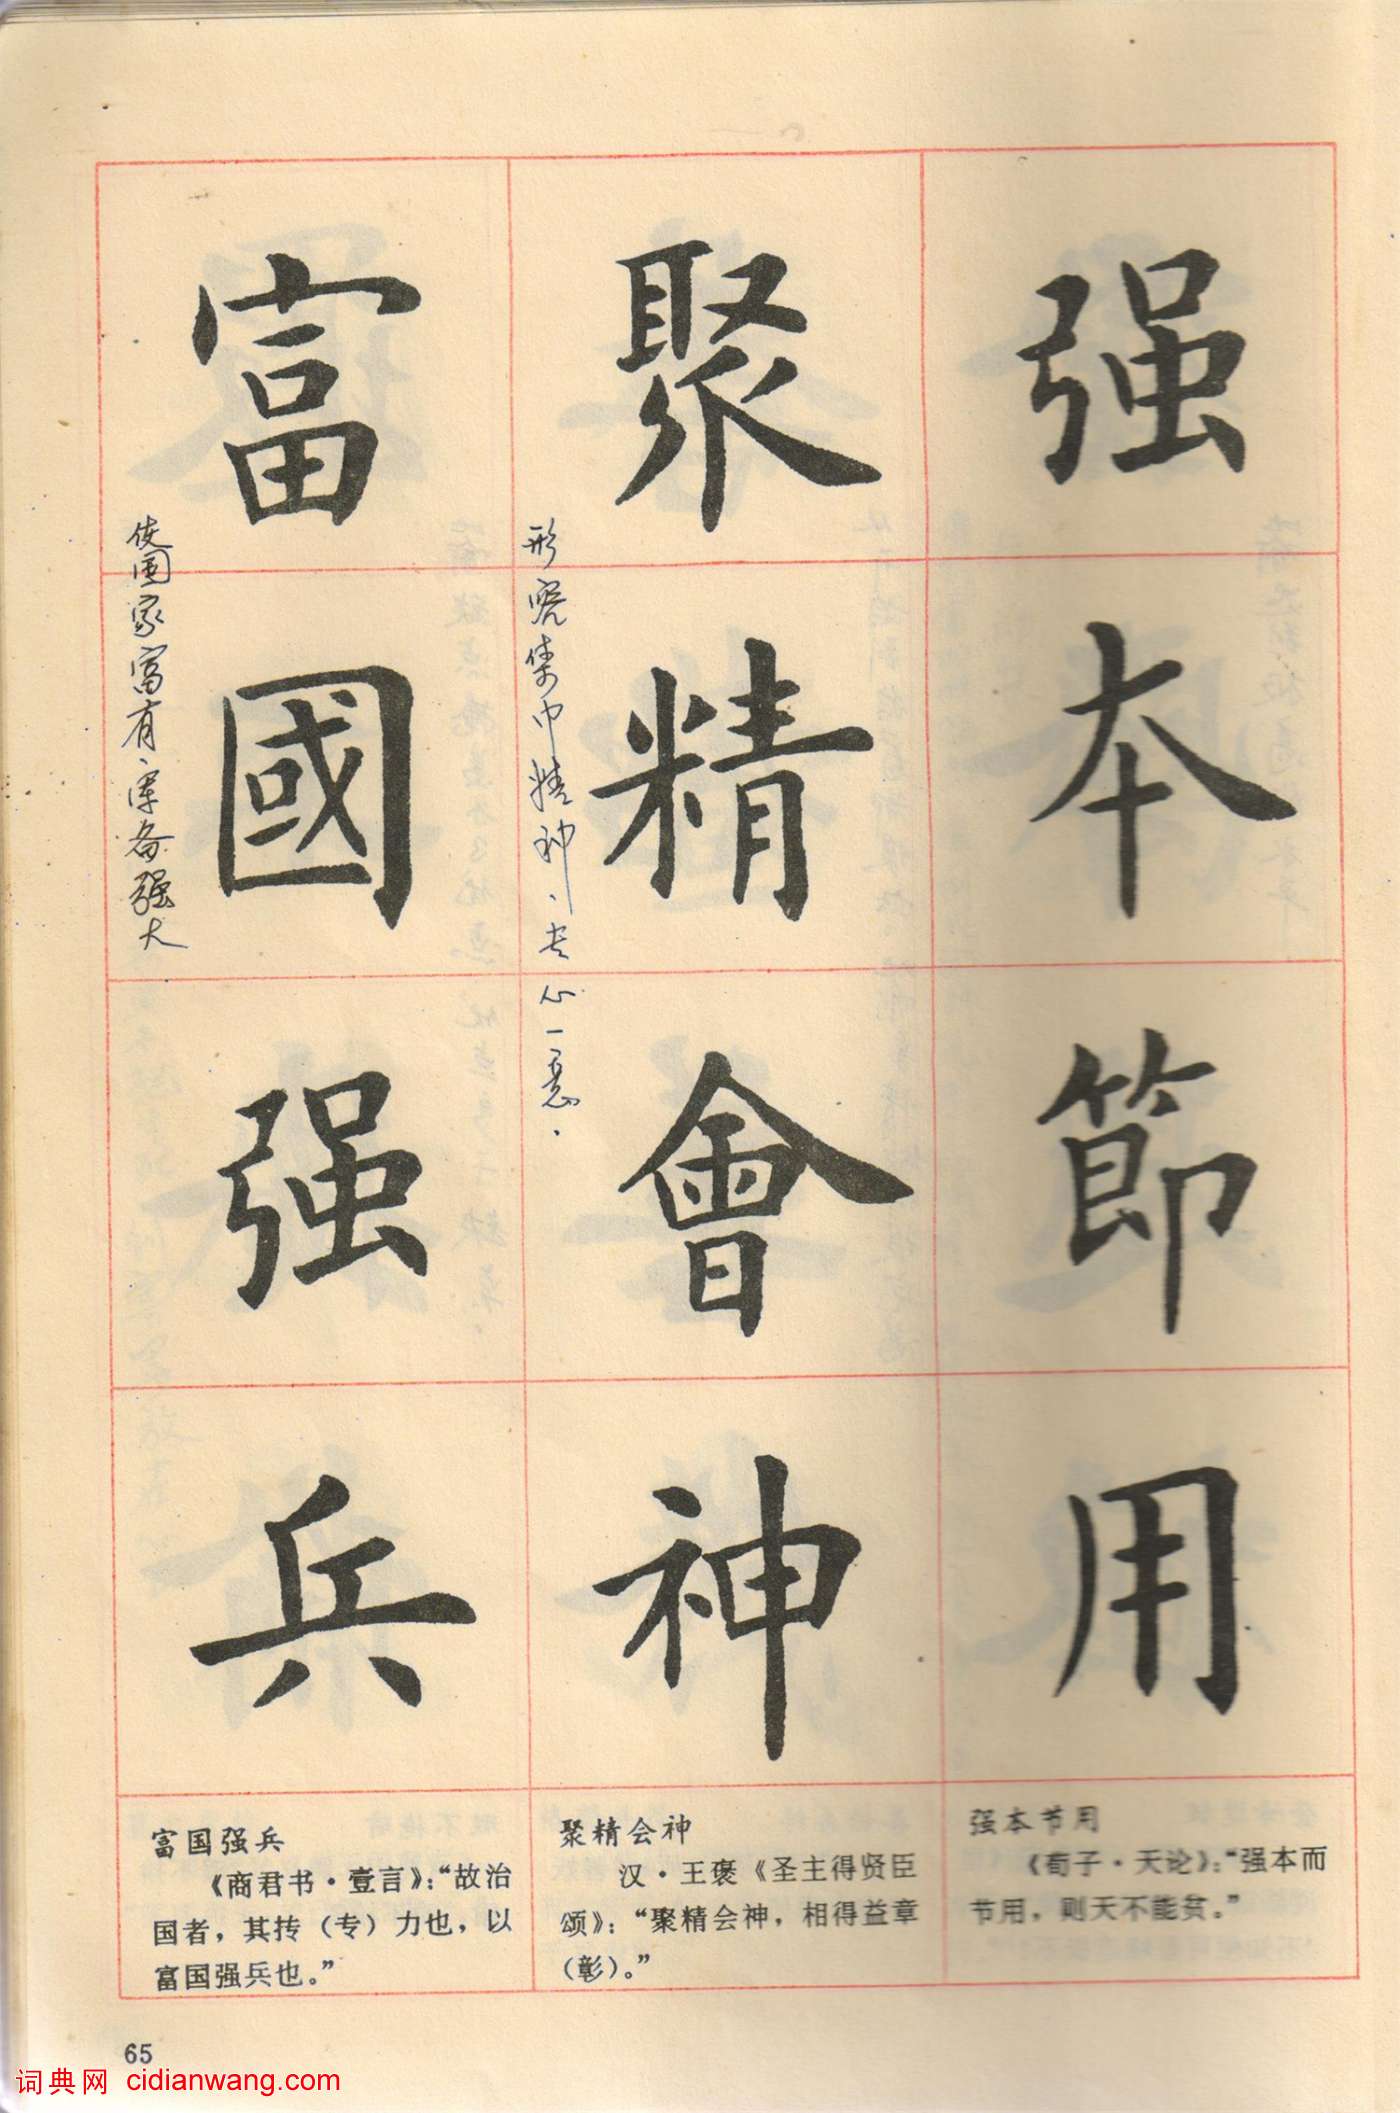 强本節用
聚精會神
富國强兵
形容集中精神、专心一意.
使国家富有、军备强大
强本节用
《荀子·天论》:“强本而
节用，则天不能贫。”
聚精会神
汉·王褒《圣主得贤臣
颂》:“聚精会神，相得益章
(彰)。”
富国强兵
《商君书·壹言》:“故治
国者，其抟（专）力也，以
富国强兵也。”
65
词典网 cidianwang.com